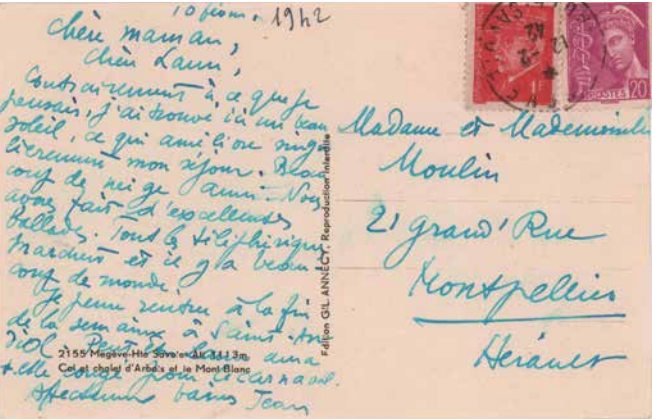 10 févr. 1942
Chère maman,
Chère Laure,
Contrairement à ce que je
pensais, j'ai trouvé ici un beau
soleil, ce qui améliore singu
lièrement mon séjour. Beau
coup de neige aussi. Nous
avons fait d'excellentes
ballades. Tous les téléphériques
marchent et il y a beau
coup de monde.
Je pense rentrer à la fin
de la semaine à Saint-An
diol. Peut-être Laure aura
t-elle congé pour le carnaval.
Affectueux baisers Jean
2155 Megève-Hte Savoie Alt. 1113m.
Col et chalet d'Arbois et le Mont Blanc
Edition GIL ANNECY, Reproduction interdite
1F
POSTES 20
Madame et Mademoiselle
Moulin
21 Grand'Rue
Montpellier
Hérault